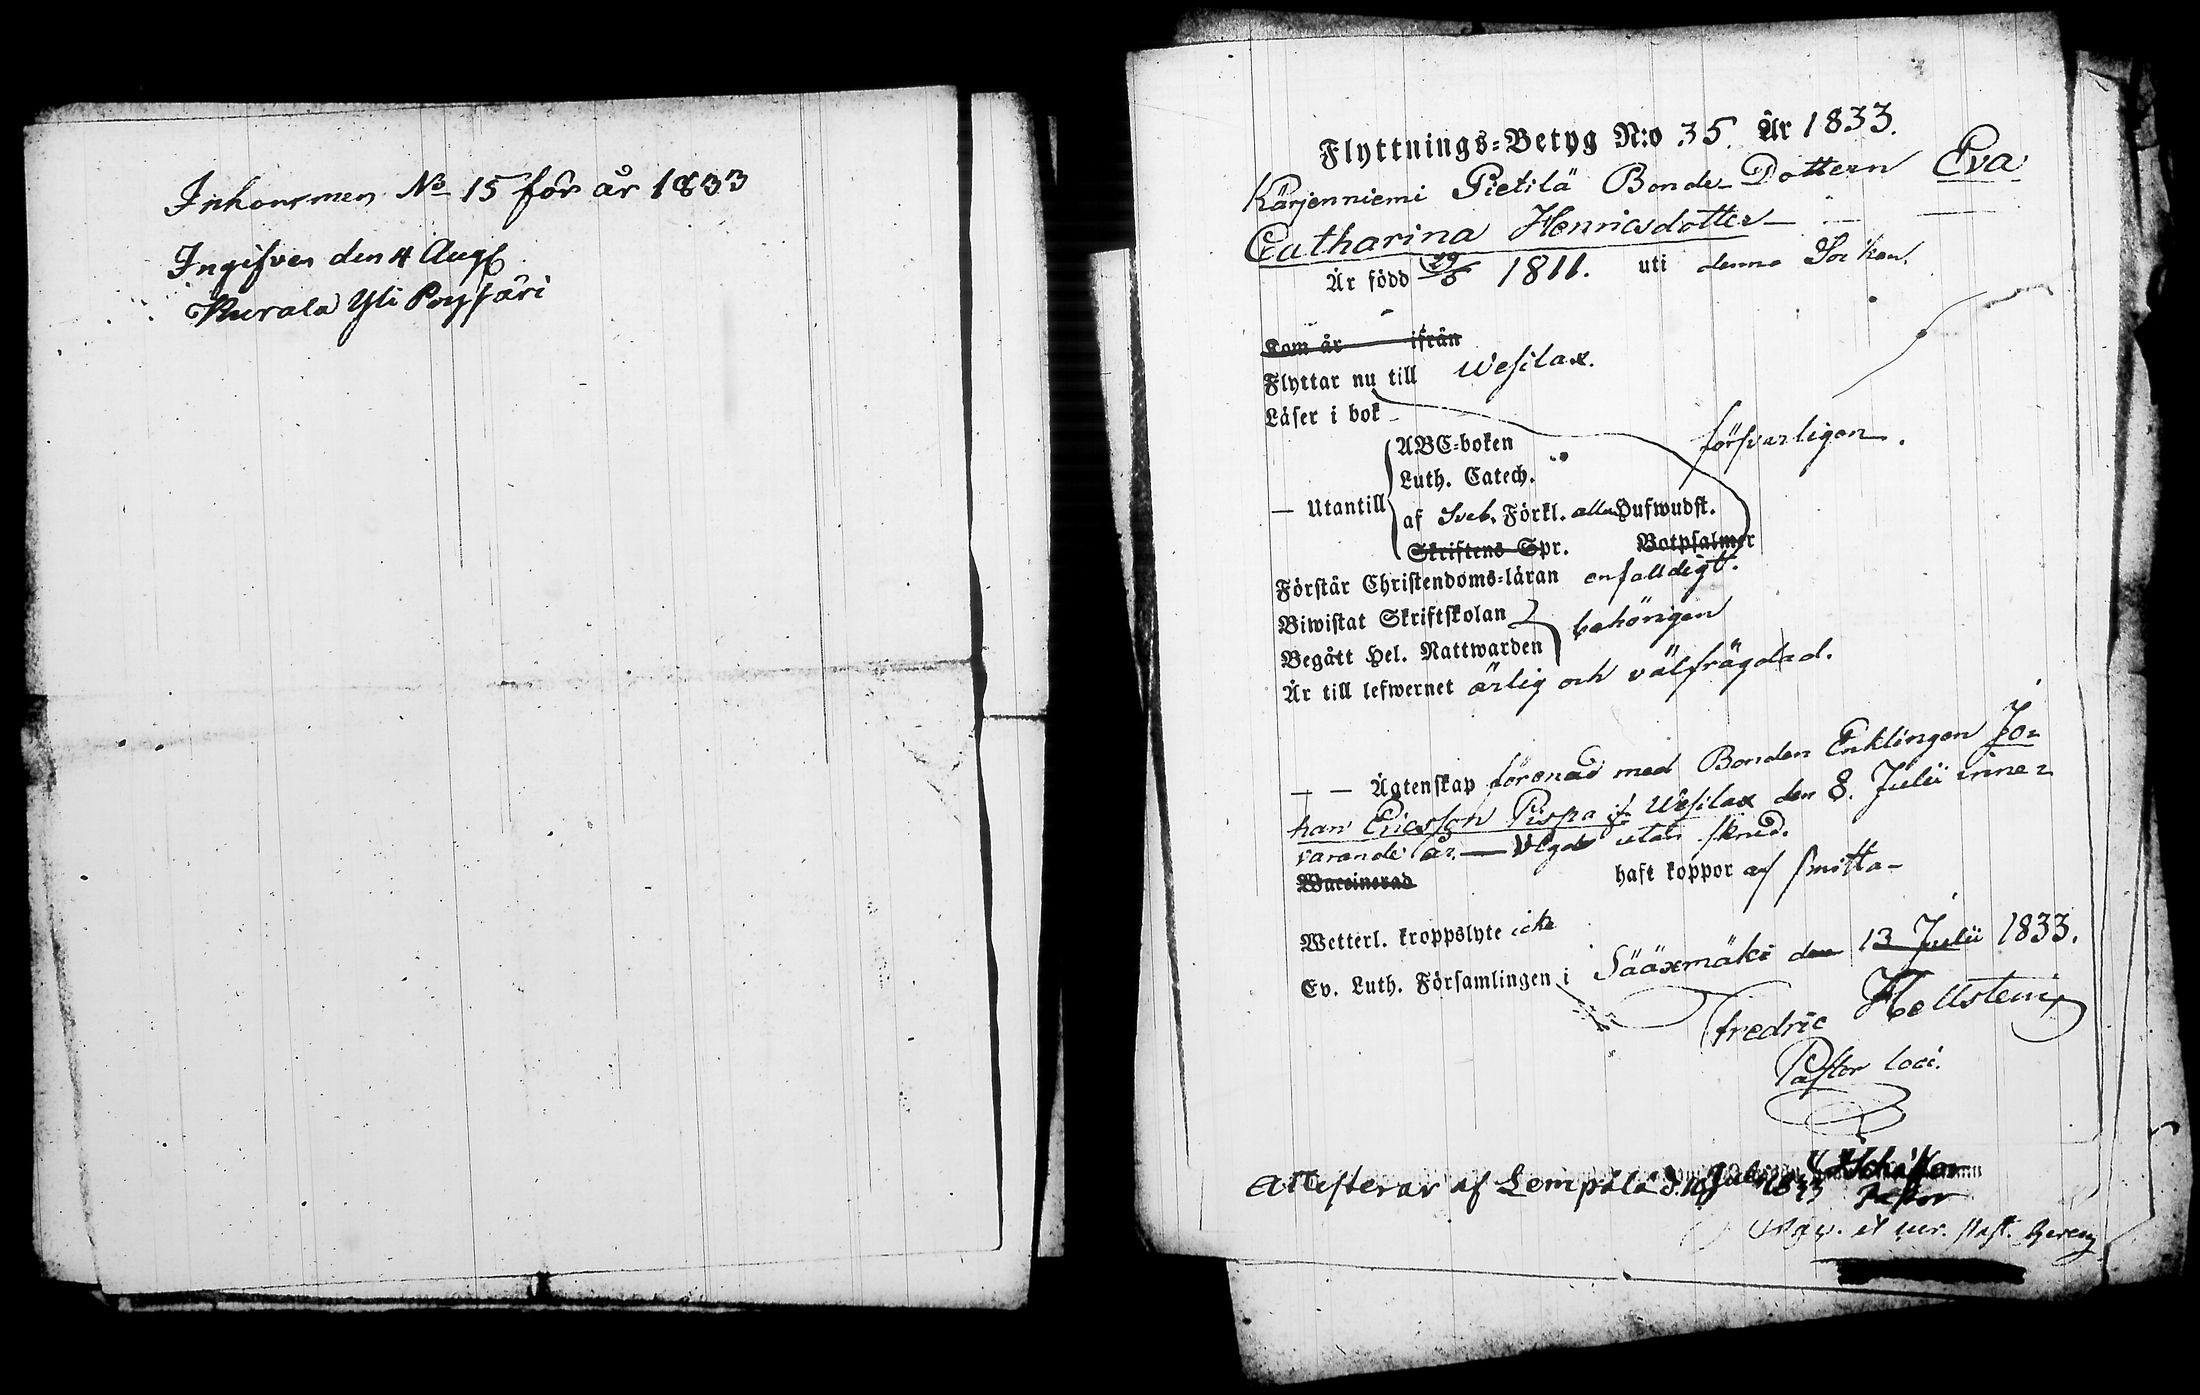 Inkommen No 15 för år 1833
Ingifven den 4 Aug
Kurala Yli Pöyhäri
Flyttnings-Betyg N:o 35. År 1833.
Kärjenniemi Pietilä Bonde Dottern Eva
Catharina Henricsdotter
Är född 29/5 1811. uti denna Socken.
Kom år ifrån
Flyttar nu till Wesilax.
Läser i bok
försvarligen.
ABC-boken
Luth. Catech.
— Utantill
af Sveb. Förkl. alla Hufwudst.
Skriftens Spr. Botpsalmer
Förstår Christendoms-läran enfalldigt.
Biwistat Skriftskolan
behörigen
Begått Hel. Nattwarden
Är till lefwernet ärlig och välfrägdad.
— — Ägtenskap förenad med Bonden Enklingen Jo-
han Ericsson Pispa if. Wesilax den 8. Julii inne-
varande år. — Vigde utan skrud.
Waccinerad haft koppor af smitta
Wetterl. kroppslyte icke
Ev. Luth. Församlingen i Sääxmäki den 13 Julii 1833.
Fredric Hellstein
Pastor loci.
Attesterar af Lempälä d. 1833
Pastor